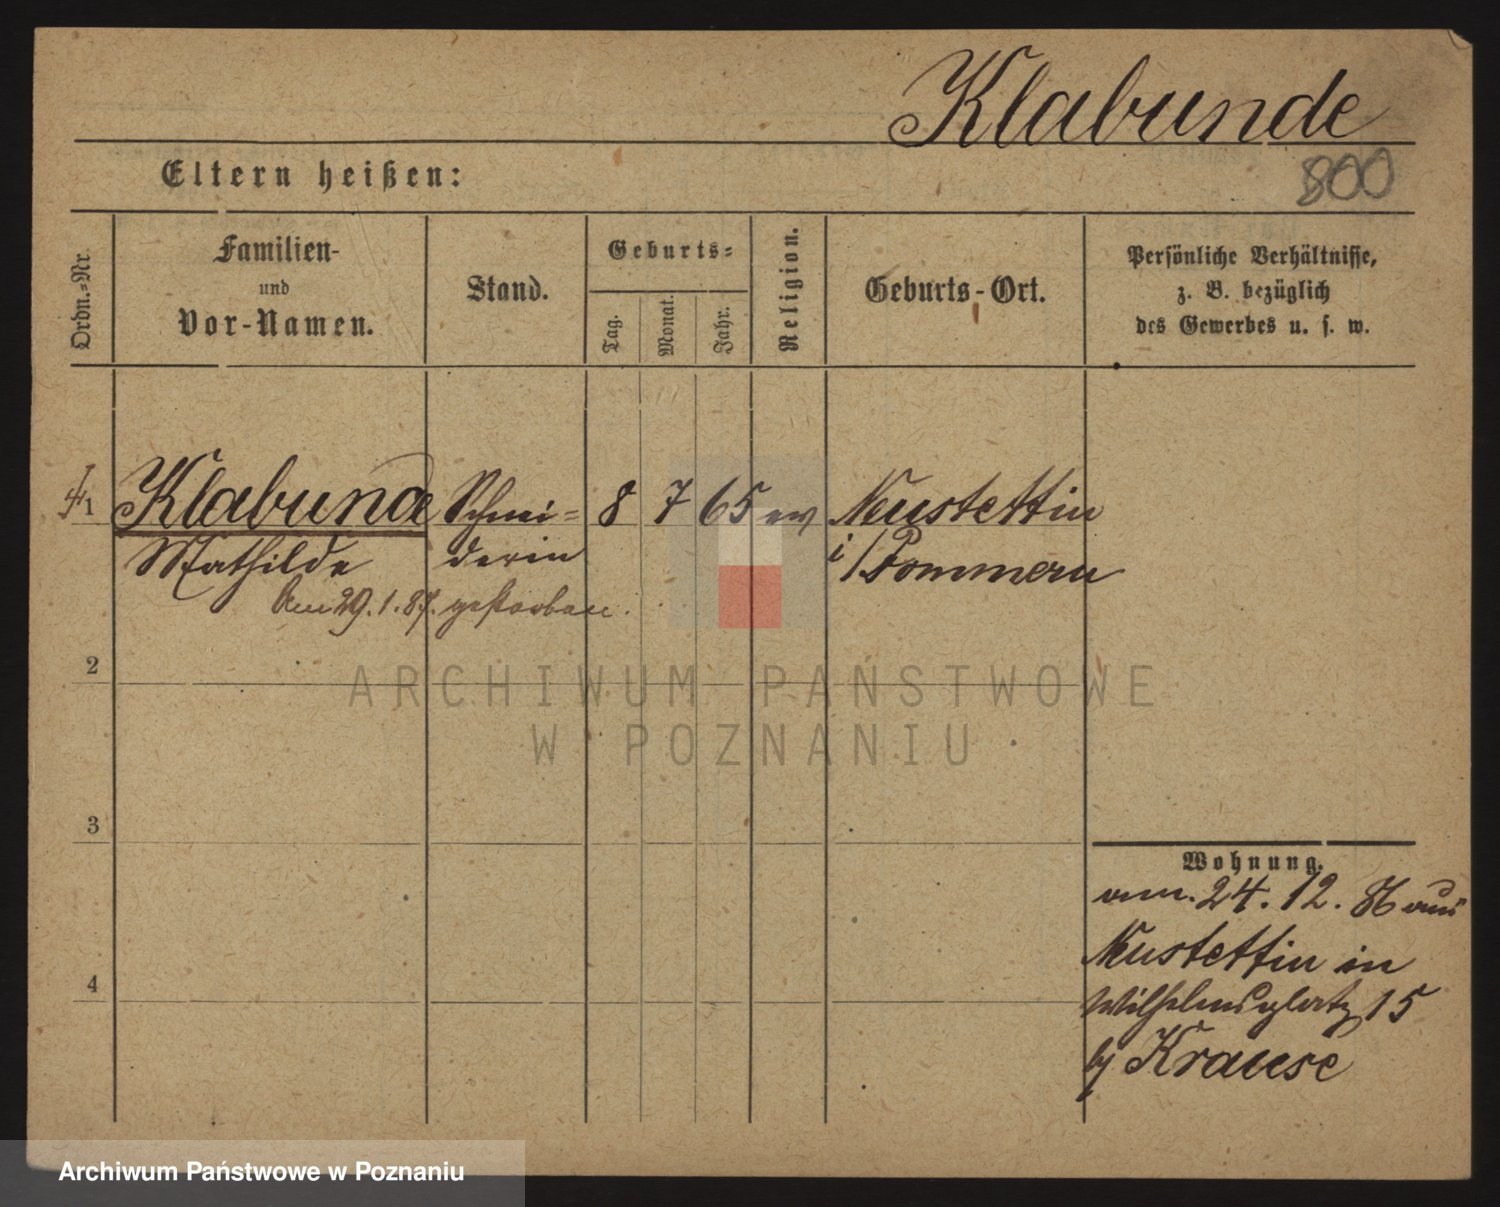 Klabunde
800
Eltern heißen:
Ordn.-Nr.
Familien-
und
Vor-Namen.
Stand.
Geburts-
Tag.
Monat.
Jahr.
Religion.
Geburts-Ort.
Persönliche Verhältnisse,
z. B. bezüglich
des Gewerbes u. s. w.
1 Klabunde Schnei- 8 7 65 ev Neustettin
Mathilde derin i/Pommern
Am 29.1.87. gestorben.
2
ARCHIWUM PAŃSTWOWE
W POZNANIU
3
Wohnung.
am. 24. 12. 86 aus
4
Neustettin in
Wilhelmsplatz 15
by Krause
Archiwum Państwowe w Poznaniu